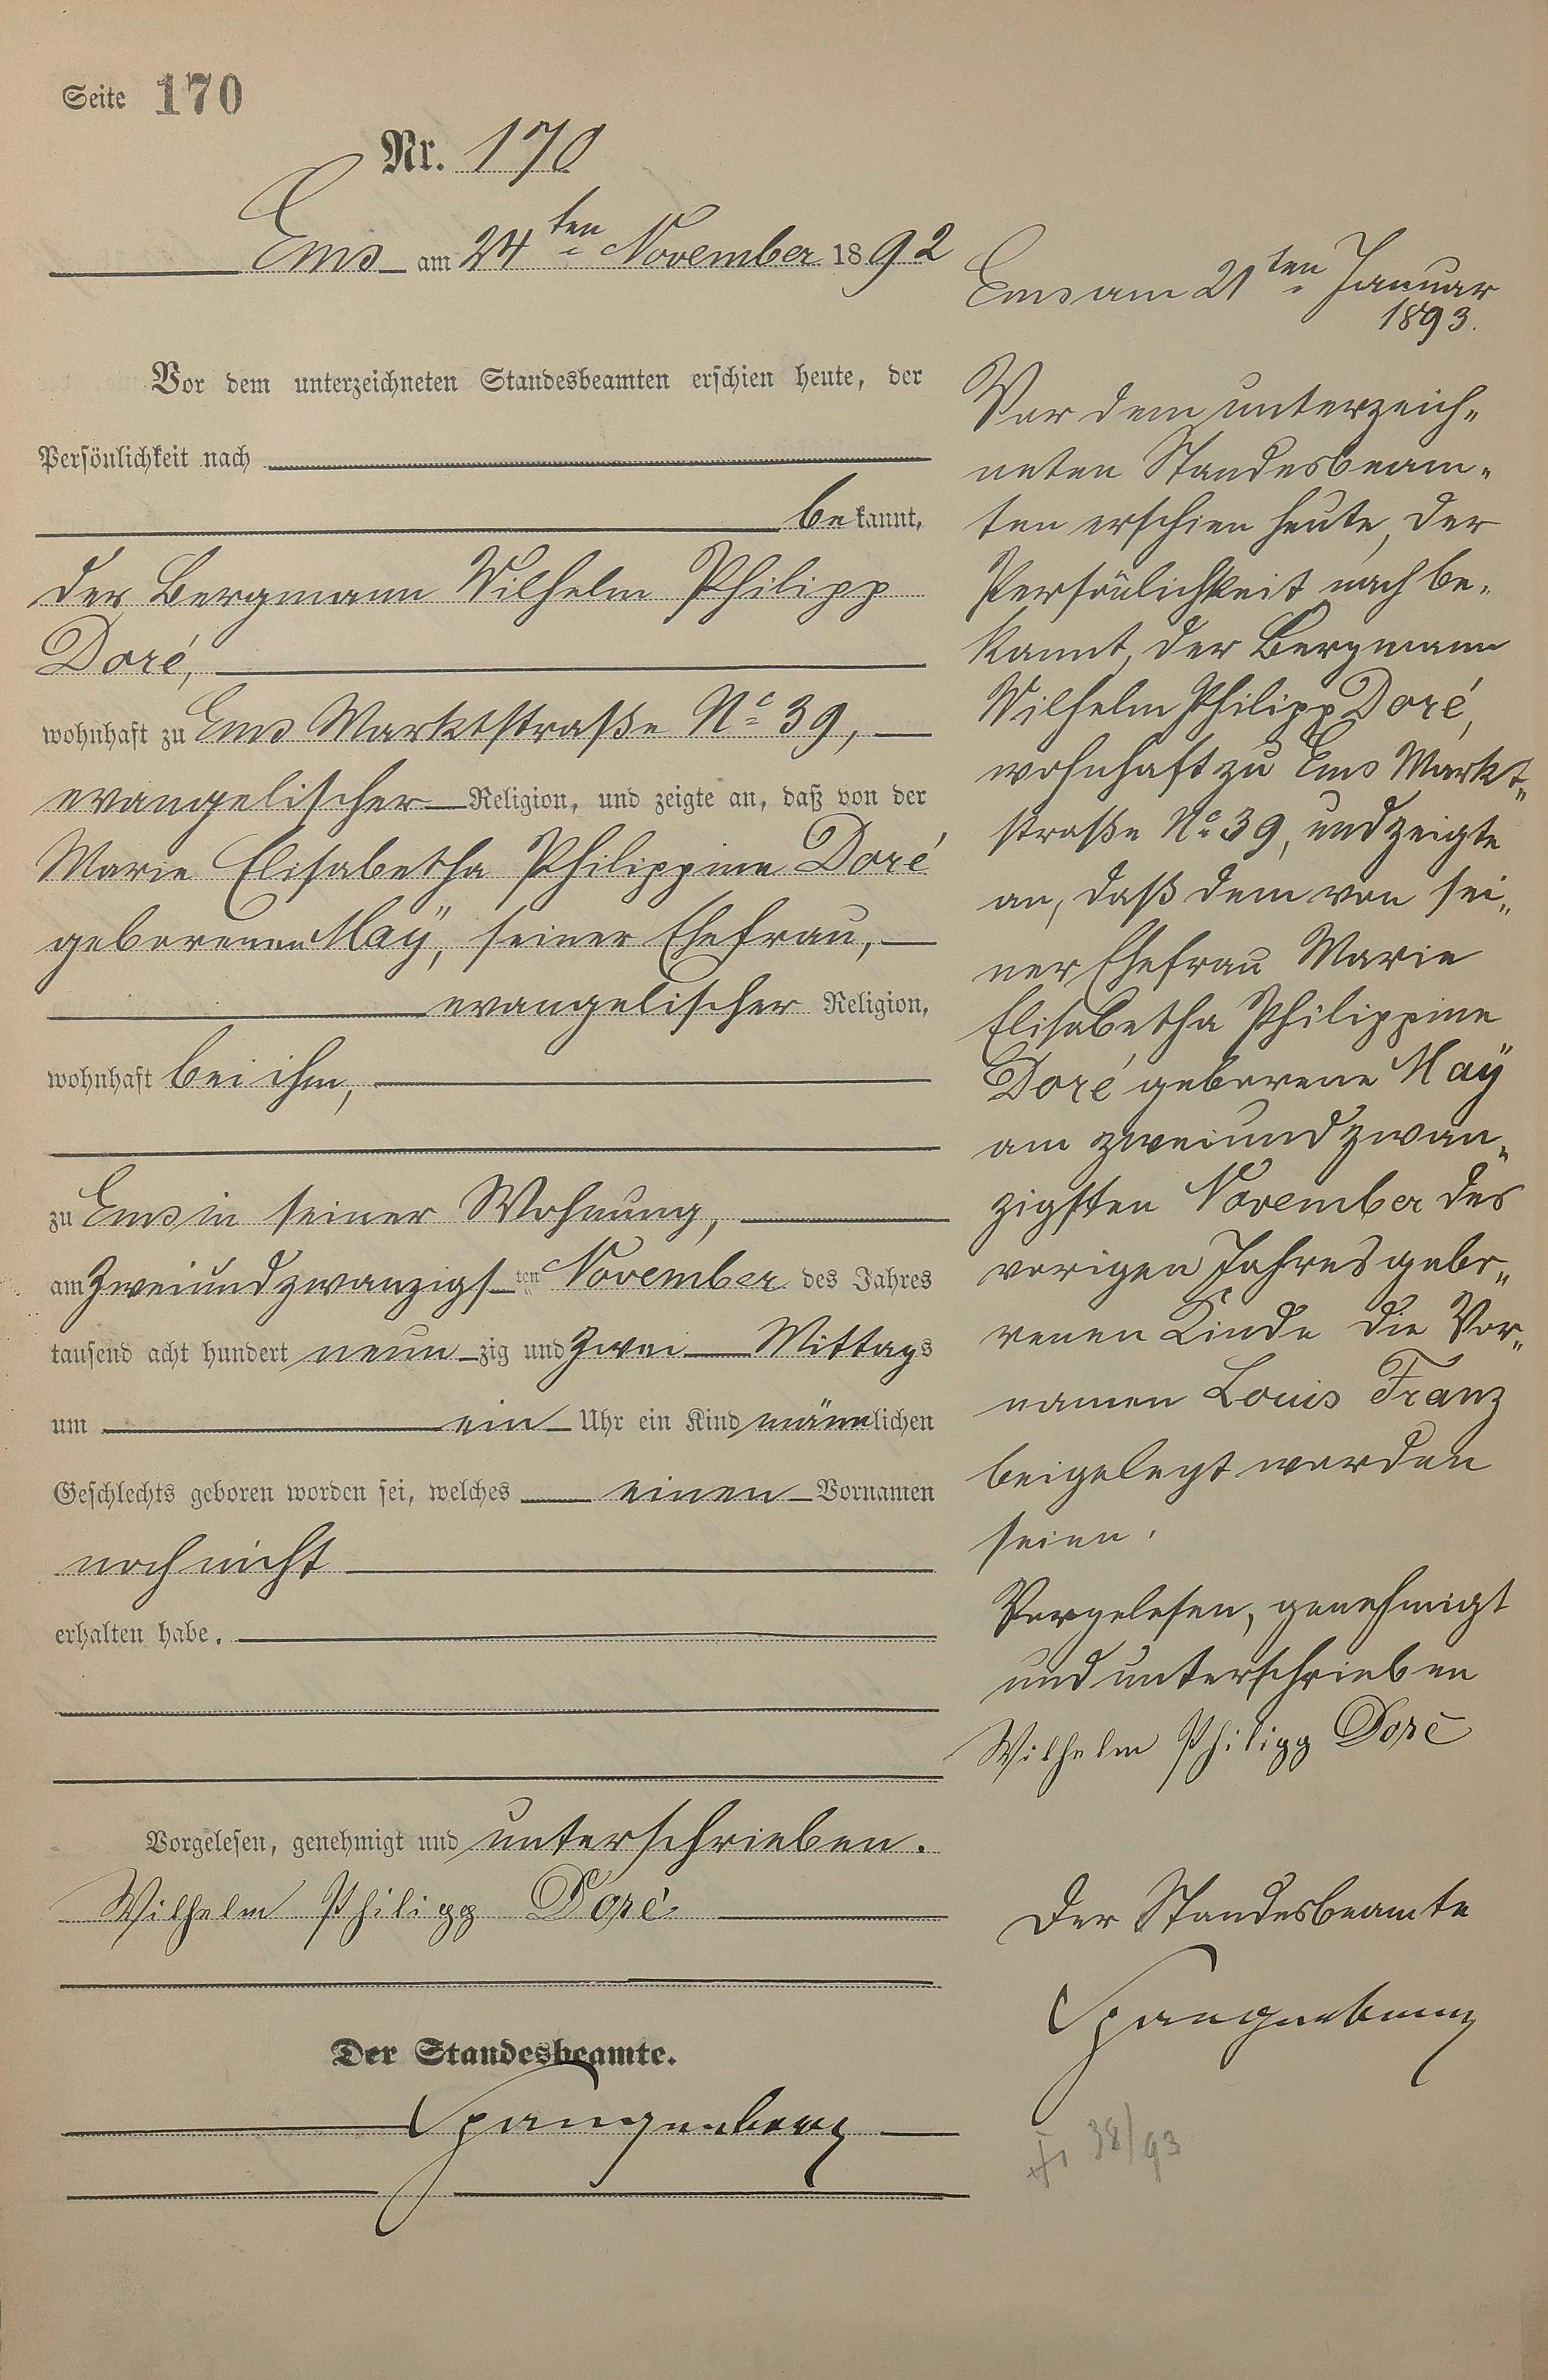 Seite 170
Nr. 170
Ems am 24ten November 1892
Vor dem unterzeichneten Standesbeamten erschien heute, der
Persönlichkeit nach
bekannt,
der Bergmann Wilhelm Philipp
Doré,
wohnhaft zu Ems Marktstraße No 39,
evangelischer Religion, und zeigte an, daß von der
Marie Elisabetha Philippine Doré
geborenen Maÿ, seiner Ehefrau,
evangelischer Religion,
wohnhaft bei ihm,
zu Ems in seiner Wohnung,
am zweiundzwanzigsten November des Jahres
tausend acht hundert neunzig und zwei Mittags
um ein Uhr ein Kind männlichen
Geschlechts geboren worden sei, welches einen Vornamen
noch nicht
erhalten habe.
Vorgelesen, genehmigt und unterschrieben.
Wilhelm Philipp Doré
Der Standesbeamte.
Spangenberg
Ems am 21ten Januar
1893.
Vor dem unterzeich-
neten Standesbeam-
ten erschien heute, der
Persönlichkeit nach be-
kannt, der Bergmann
Wilhelm Philipp Doré,
wohnhaft zu Ems Markt-
straße No 39, und zeigte
an, daß dem von sei-
ner Ehefrau Marie
Elisabetha Philippine
Doré geborene Maÿ
am zweiundzwan-
zigsten November des
vorigen Jahres gebo-
renen Kinde die Vor-
namen Louis Franz
beigelegt worden
seien.
Vorgelesen, genehmigt
und unterschrieben
Wilhelm Philipp Doré
Der Standesbeamte
Spangenberg
38/93